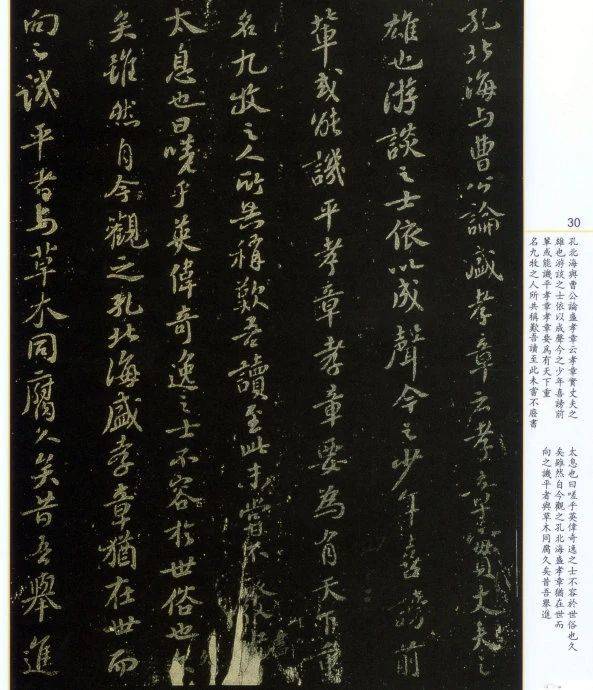 30
孔北海與曹公論盛孝章云孝章實丈夫之
雄也游談之士依以成聲今之少年喜謗前
輩或能譏平孝章孝章要為有天下重
名九牧之人所共稱歎吾讀至此未嘗不廢書
太息也曰嗟乎英偉奇逸之士不容於世俗也久
矣雖然自今觀之孔北海盛孝章猶在世而
向之譏平者與草木同腐久矣昔吾舉進
孔北海与曹公論盛孝章云孝章實丈夫之
雄也游談之士依以成聲今之少年喜謗前
輩或能譏平孝章孝章要為有天下重
名九牧之人所共稱歎吾讀至此未嘗不廢書
太息也曰嗟乎英偉奇逸之士不容於世俗也久
矣雖然自今觀之孔北海盛孝章猶在世而
向之譏平者与草木同腐久矣昔吾舉進